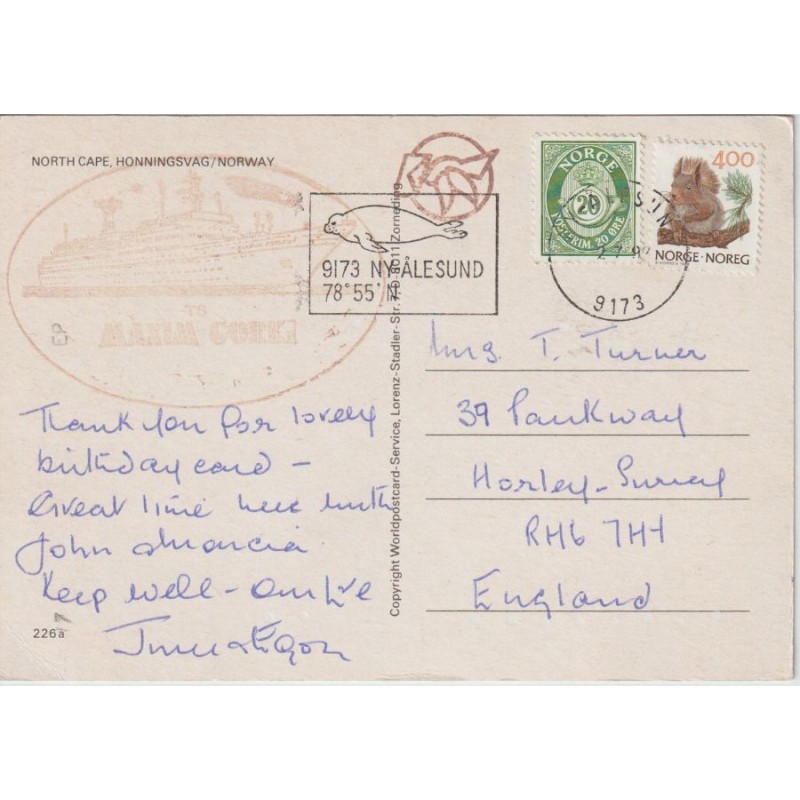 NORTH CAPE, HONNINGSVAG/NORWAY
TS
MAXIM GORKI
9173 NY-ÅLESUND
78°55'N
NORGE
20
POSTFRIM. 20 ØRE
400
NORGE·NOREG
9173
Thank you for lovely
birthday card –
Great time here with
John & Marcia
Keep well –
June & Egon
226a
Copyright Worldpostcard-Service, Lorenz-Stadler-Str. 7, D-8011 Zorneding
Mrs. T. Turner
39 Parkway
Horley – Surrey
RH6 7HH
England